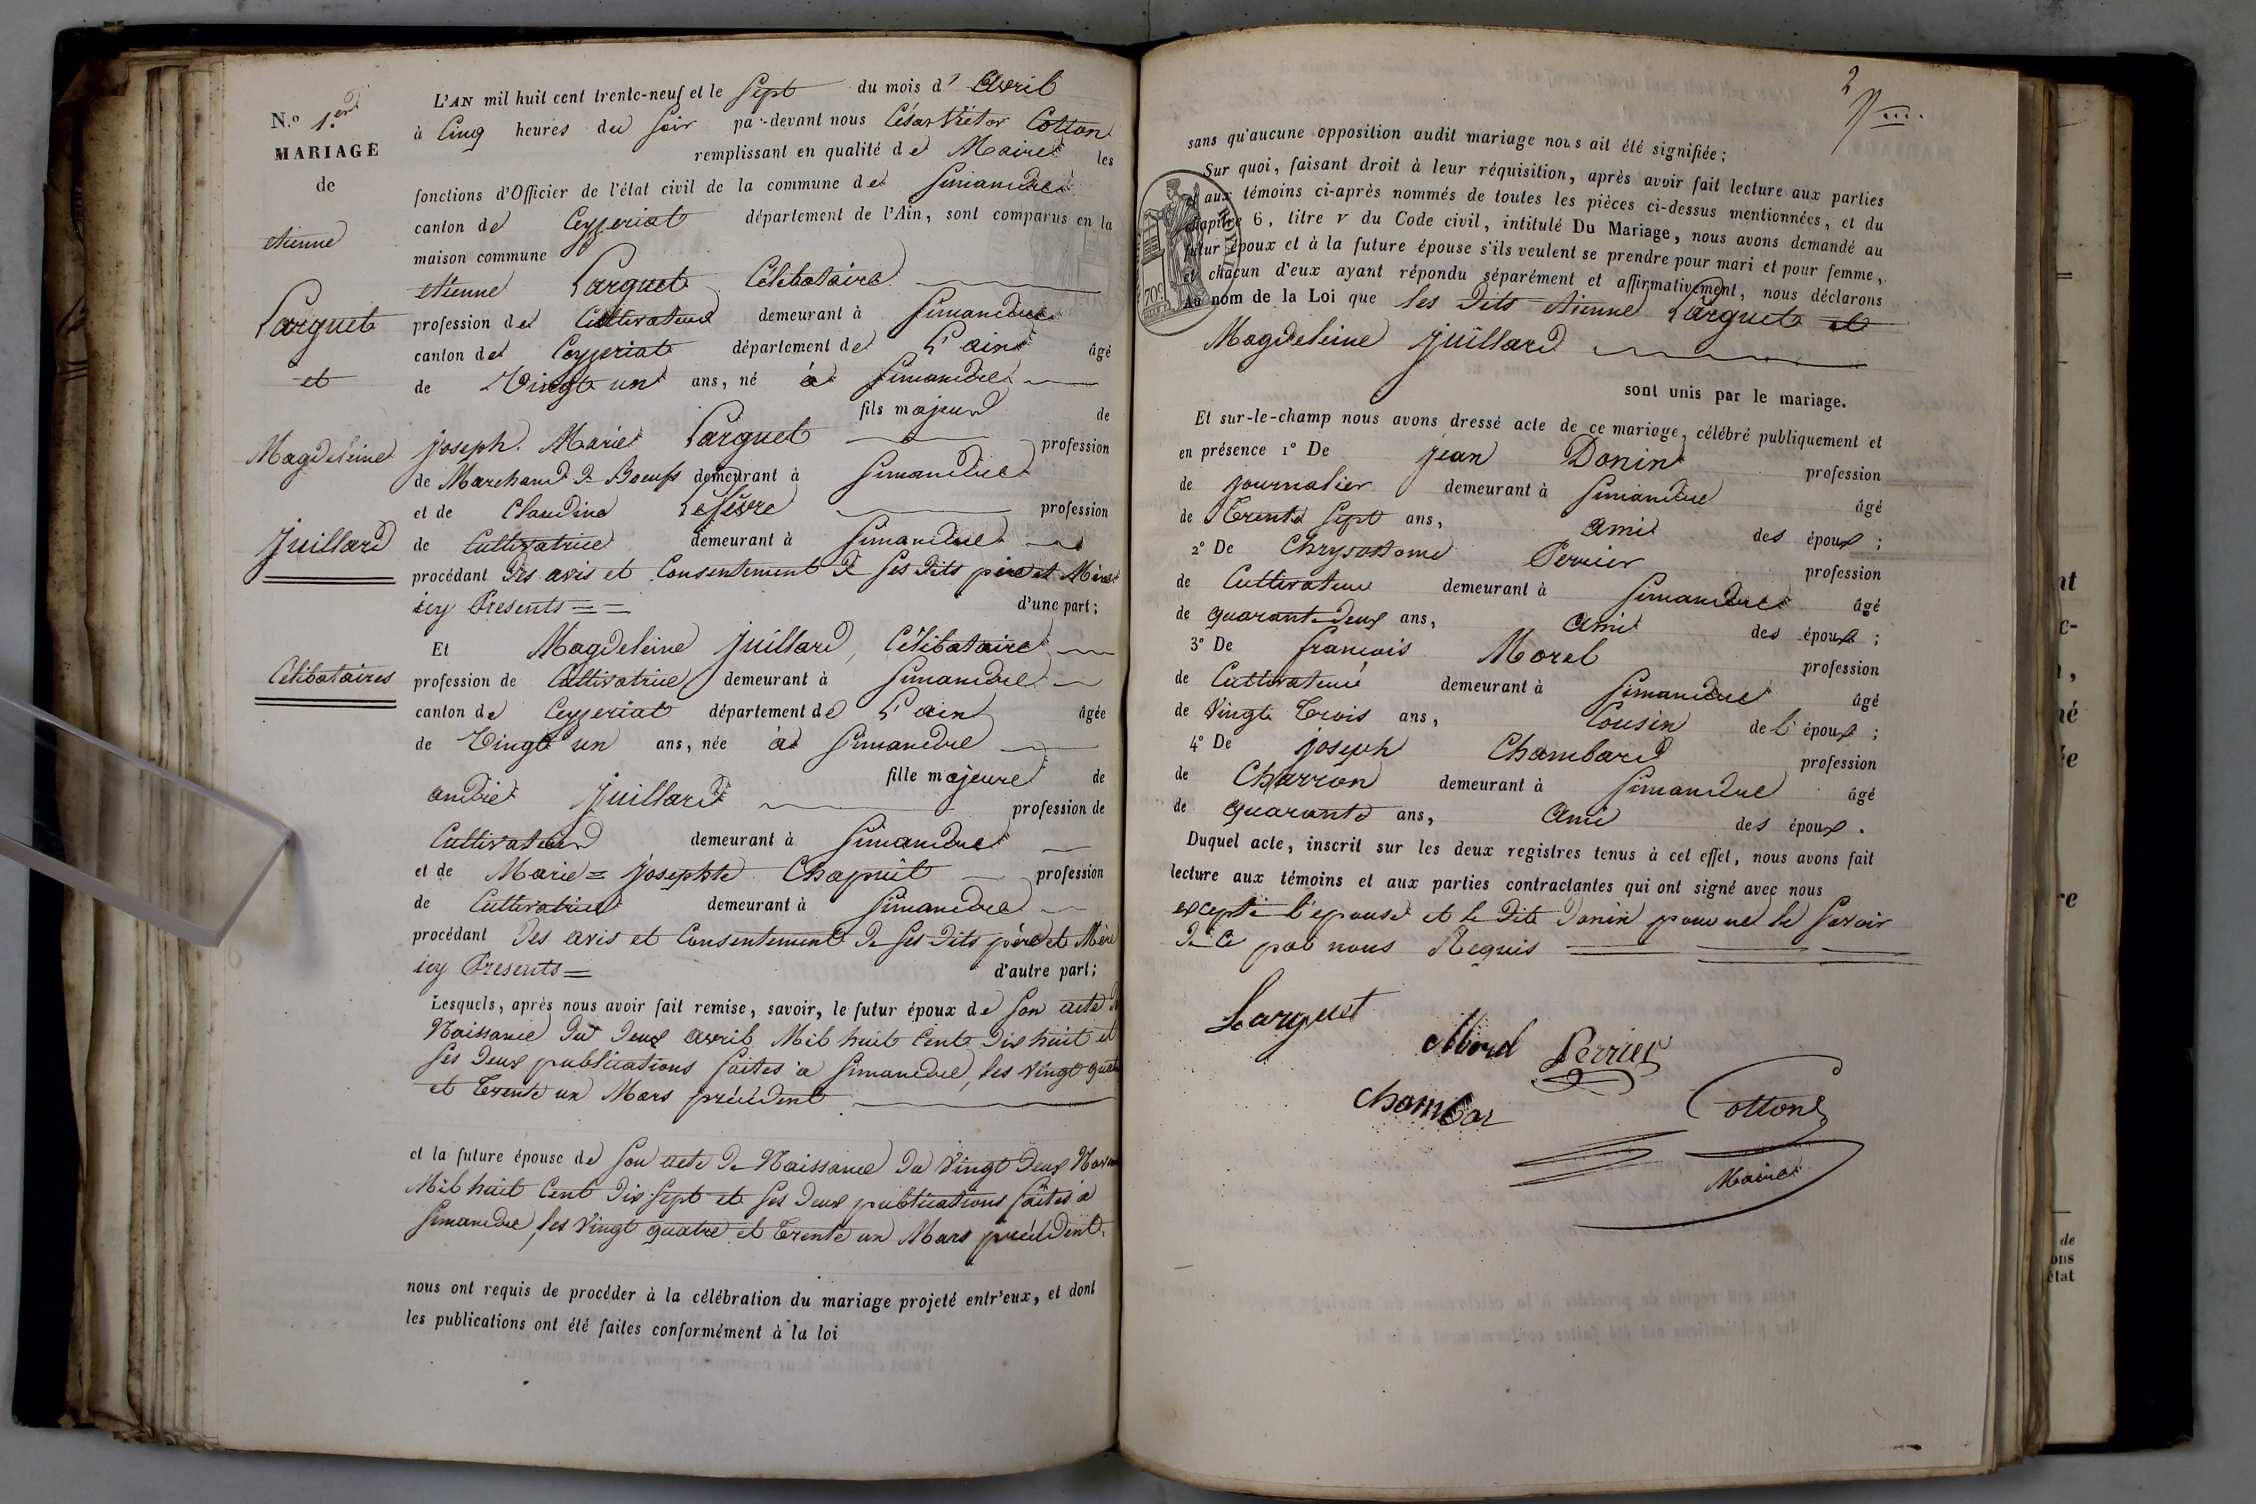 N.o 1.er
MARIAGE
de
etienne
Larguet
et
Magdeleine
Juillard
Célibataires
L'AN mil huit cent trente-neuf et le sept du mois d' avril
à Cinq heures du soir par-devant nous César Victor Cotton
remplissant en qualité de Maire les
fonctions d'Officier de l'état civil de la commune de Simandre
canton de Ceyzeriat département de l'Ain, sont comparus en la
maison commune
etienne Larguet Célibataire
profession de Cultivateur demeurant à Simandre
canton de Ceyzeriat département de L'ain âgé
de Vingt un ans, né à Simandre
fils majeur de
joseph Marie Larguet profession
de Marchand de Boeufs demeurant à Simandre
et de Claudine Lefèvre profession
de Cultivatrice demeurant à Simandre
procédant des avis et Consentement de ses dits père et Mère
icy Presents = = d'une part;
Et Magdeleine Juillard, Célibataire
profession de Cultivatrice demeurant à Simandre
canton de Ceyzeriat département de L'ain âgée
de Vingt un ans, née à Simandre
fille majeure de
andré Juillard profession de
Cultivateur demeurant à Simandre
et de Marie = josephte Chapuit profession
de Cultivatrice demeurant à Simandre
procédant des avis et Consentement de ses dits père et Mère
icy Presents = d'autre part;
Lesquels, après nous avoir fait remise, savoir, le futur époux de son acte de
Naissance du deux avril Mil huit Cent dix huit et
ses deux publications faites à Simandre, les vingt quatre
et trente un Mars précédent
et la future épouse de son acte de Naissance du vingt deux
Mil huit Cent dix sept et ses deux publications faites à
Simandre, les vingt quatre et trente un Mars précédent.
nous ont requis de procéder à la célébration du mariage projeté entr'eux, et dont
les publications ont été faites conformément à la loi
2
sans qu'aucune opposition audit mariage nous ait été signifiée;
Sur quoi, faisant droit à leur réquisition, après avoir fait lecture aux parties
et aux témoins ci-après nommés de toutes les pièces ci-dessus mentionnées, et du
chapitre 6, titre V du Code civil, intitulé Du Mariage, nous avons demandé au
futur époux et à la future épouse s'ils veulent se prendre pour mari et pour femme,
et chacun d'eux ayant répondu séparément et affirmativement, nous déclarons
Au nom de la Loi que les dits etienne Larguet et
Magdeleine Juillard
sont unis par le mariage.
Et sur-le-champ nous avons dressé acte de ce mariage, célébré publiquement et
en présence 1° De jean Donin profession
de journalier demeurant à Simandre âgé
de Trente sept ans, ami des époux;
2° De Chrysostome Perrier profession
de Cultivateur demeurant à Simandre âgé
de quarante deux ans, ami des époux;
3° De francois Morel profession
de Cultivateur demeurant à Simandre âgé
de Vingt trois ans, Cousin de l'époux;
4° De joseph Chambard profession
de Charron demeurant à Simandre âgé
de quarante ans, ami des époux.
Duquel acte, inscrit sur les deux registres tenus à cet effet, nous avons fait
lecture aux témoins et aux parties contractantes qui ont signé avec nous
excepté l'épouse et le dit Donin pour ne le savoir
de ce par nous Requis
Larguet
Morel Perrier
Chambar
Cotton
Maire